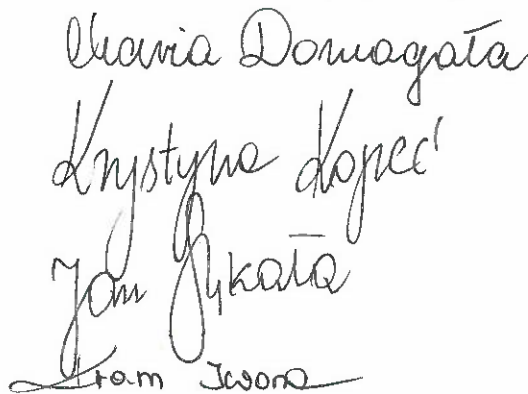 Maria Domagała
Krystyna Kopeć
Jan Pykała
Iwona